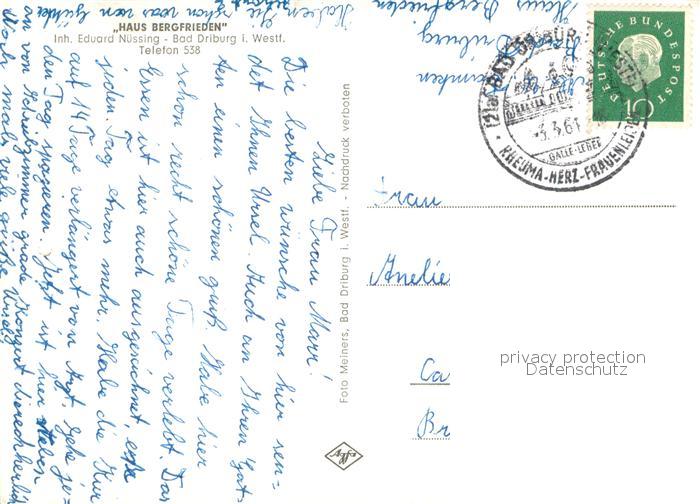 „HAUS BERGFRIEDEN"
Inh. Eduard Nüssing - Bad Driburg i. Westf.
Telefon 538
Liebe Frau Marx!
Die besten Wünsche von hier sen-
det Ihnen Ursel. Auch an Ihren Gat-
ten einen schönen Gruß. Habe hier
schon recht schöne Tage verlebt. Das
Essen ist hier auch ausgezeichnet, esse
jeden Tag etwas mehr. Habe die Kur
auf 14 Tage verlängert von Arzt. Gehe je-
den Tag spazieren. Jetzt ist hier neben
an von Schreibzimmer grade Konzert
Noch mals viele Grüße Ursel
Haben Sie schon was von
Haus Bergfrieden
Bad Driburg
Foto Meiners, Bad Driburg i. Westf. - Nachdruck verboten
DEUTSCHE BUNDESPOST
10
(21a) BAD DRIBURG
3.61
GALLE-LEBER
RHEUMA-HERZ-FRAUENLEIDEN
Frau
Anelie
Ca
Br
privacy protection
Datenschutz